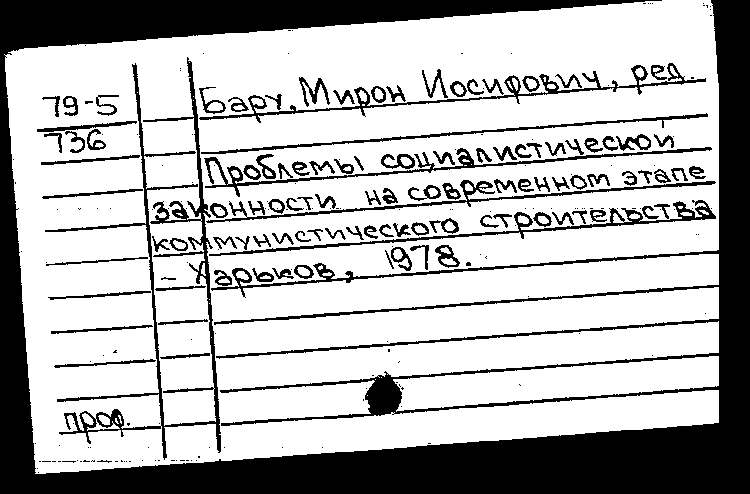 79-5
Бару, Мирон Иосифович, ред.
736
Проблемы социалистической
законности на современном этапе
коммунистического строительства
- Харьков, 1978.
проф.